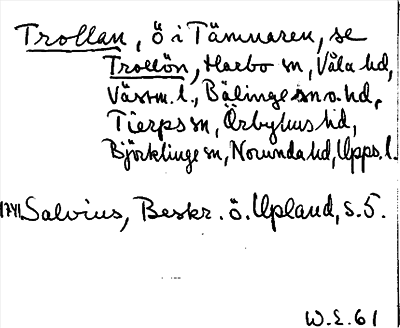 Trollan, ö i Tämnaren, se
Trollön, Harbo sn, Våla hd,
Västm. l., Bälinge sn o. hd,
Tierps sn, Örbyhus hd,
Björklinge sn, Norunda hd, Upps. l.
1741 Salvius, Beskr. ö. Upland, s. 5.
W.E. 61